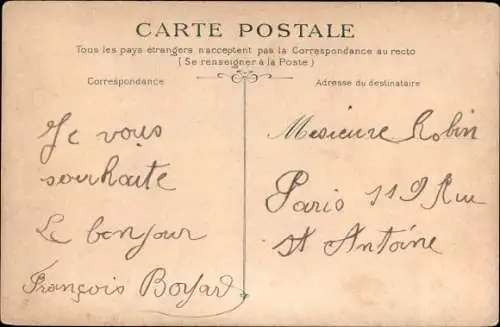 CARTE POSTALE
Tous les pays étrangers n'acceptent pas la Correspondance au recto
(Se renseigner à la Poste)
Correspondance
Je vous
souhaite
Le bonjour
François Boyard
Adresse du destinataire
Mesieure Robin
Paris 119 Rue
St Antoine